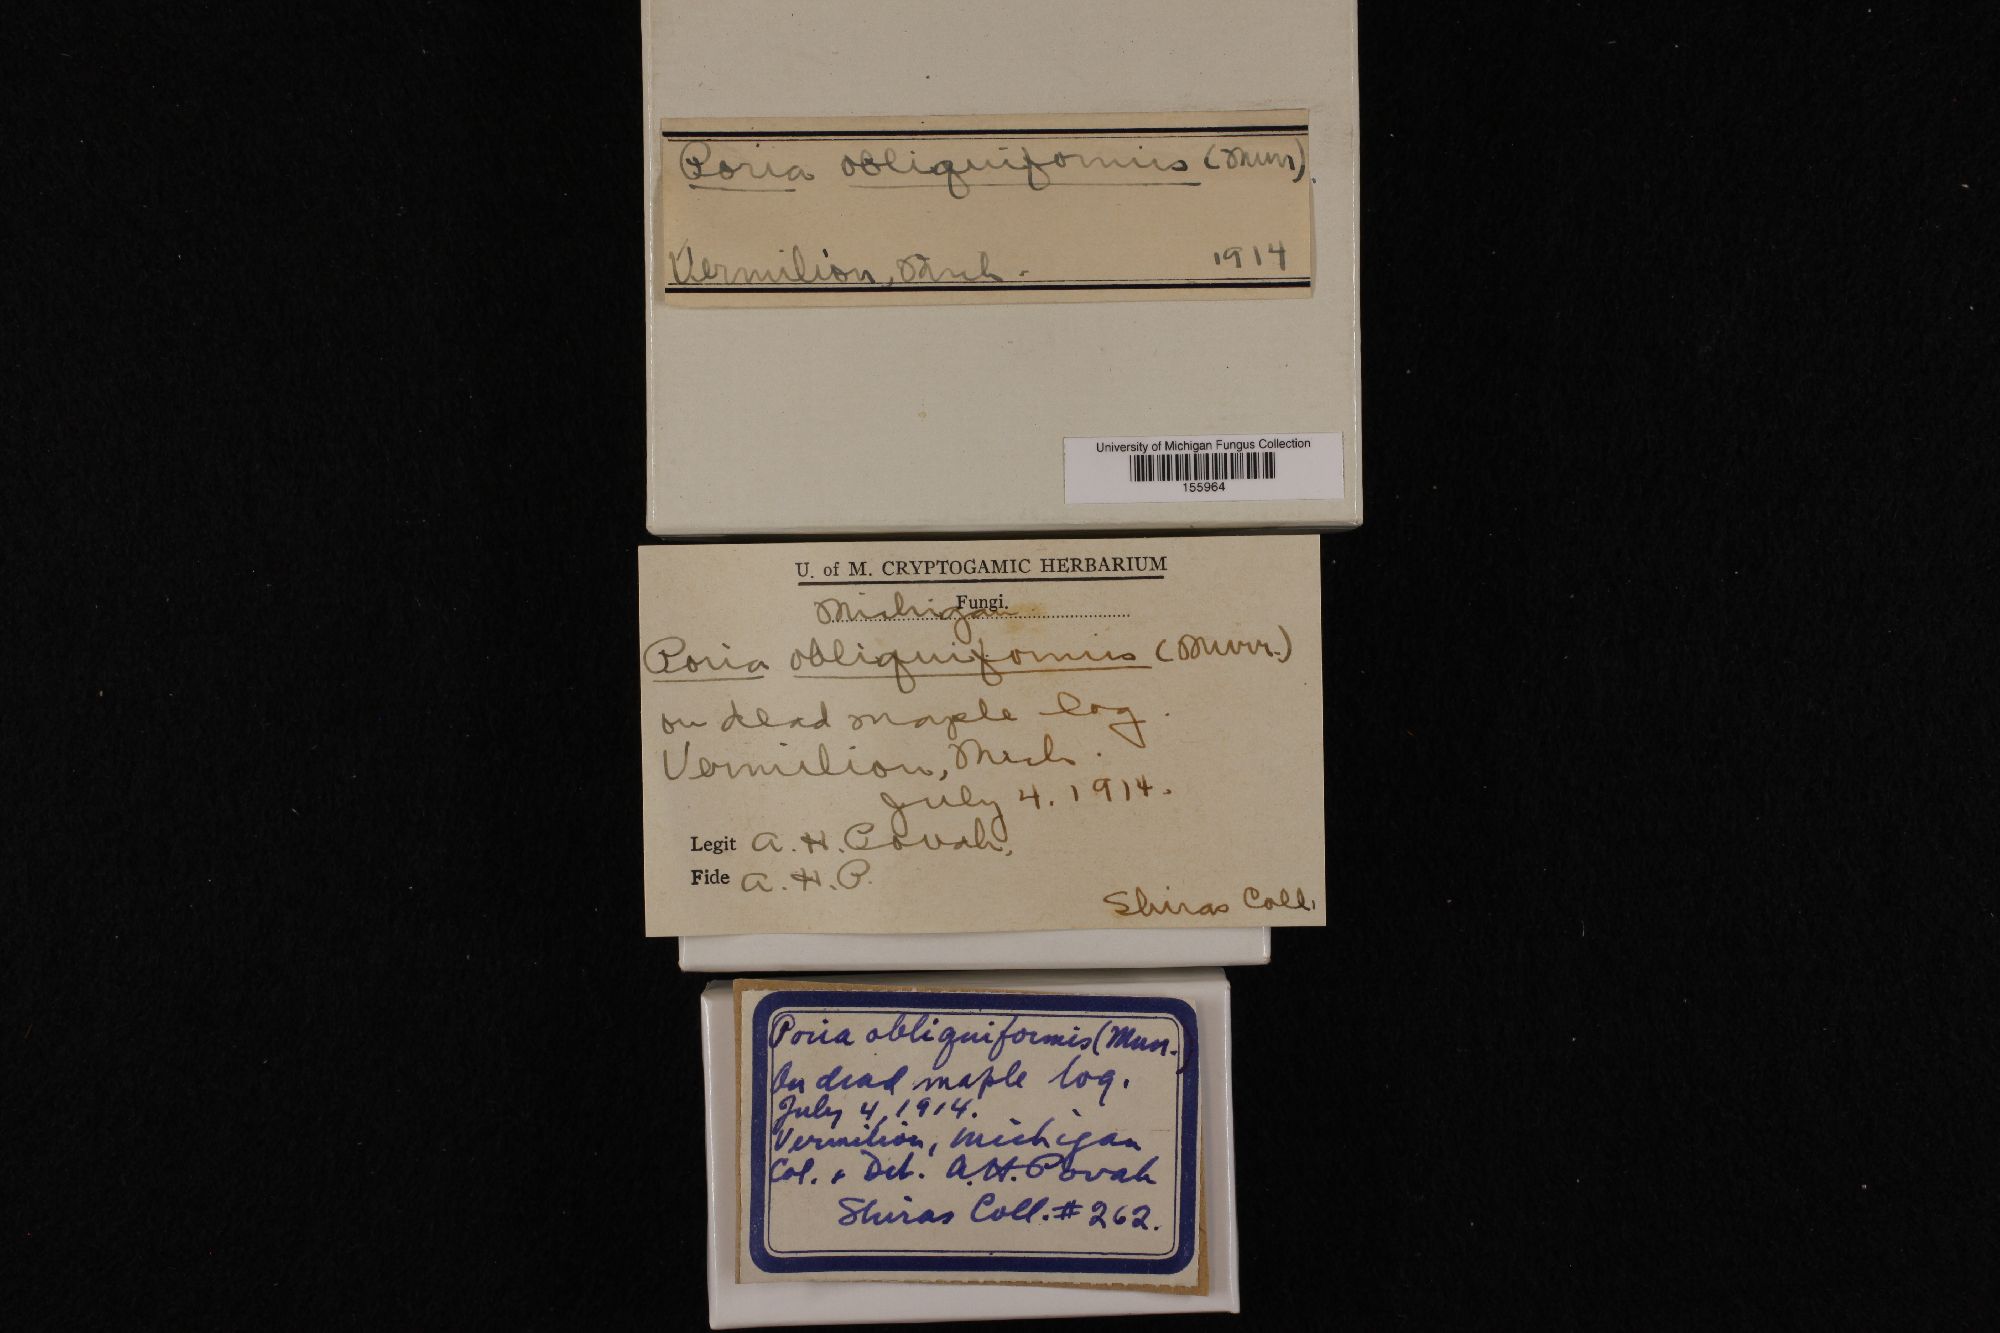 Poria obliquiformis (Murr).
Vermilion, Mich. 1914
University of Michigan Fungus Collection
155964
U. of M. CRYPTOGAMIC HERBARIUM
Fungi.
Michigan
Poria obliquiformis (Murr.)
on dead maple log.
Vermilion, Mich.
July 4. 1914.
Legit A. H. Povah,
Fide A. H. P.
Shiras Coll.
Poria obliquiformis (Murr.)
On dead maple log.
July 4, 1914.
Vermilion, Michigan
Col. & Det. A. H. Povah
Shiras Coll. # 262.